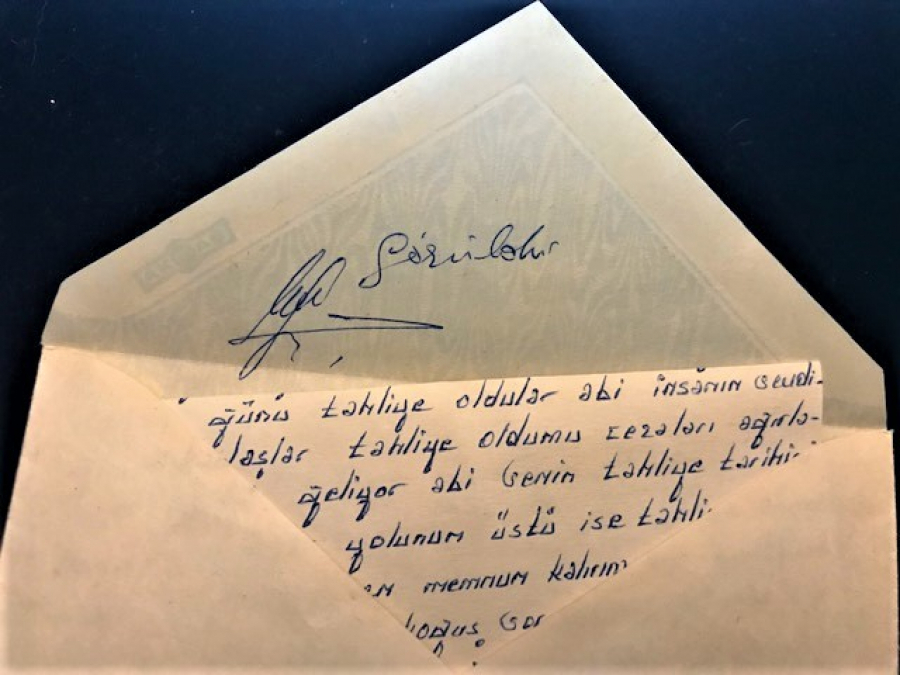 Görüldü
günü tahliye oldular abi insanın sevdi-
laşlar tahliye oldumu cezaları ağırla-
geliyor abi benim tahliye tarihi
yolunun üstü ise tahli
memnun kalırım
koğuş